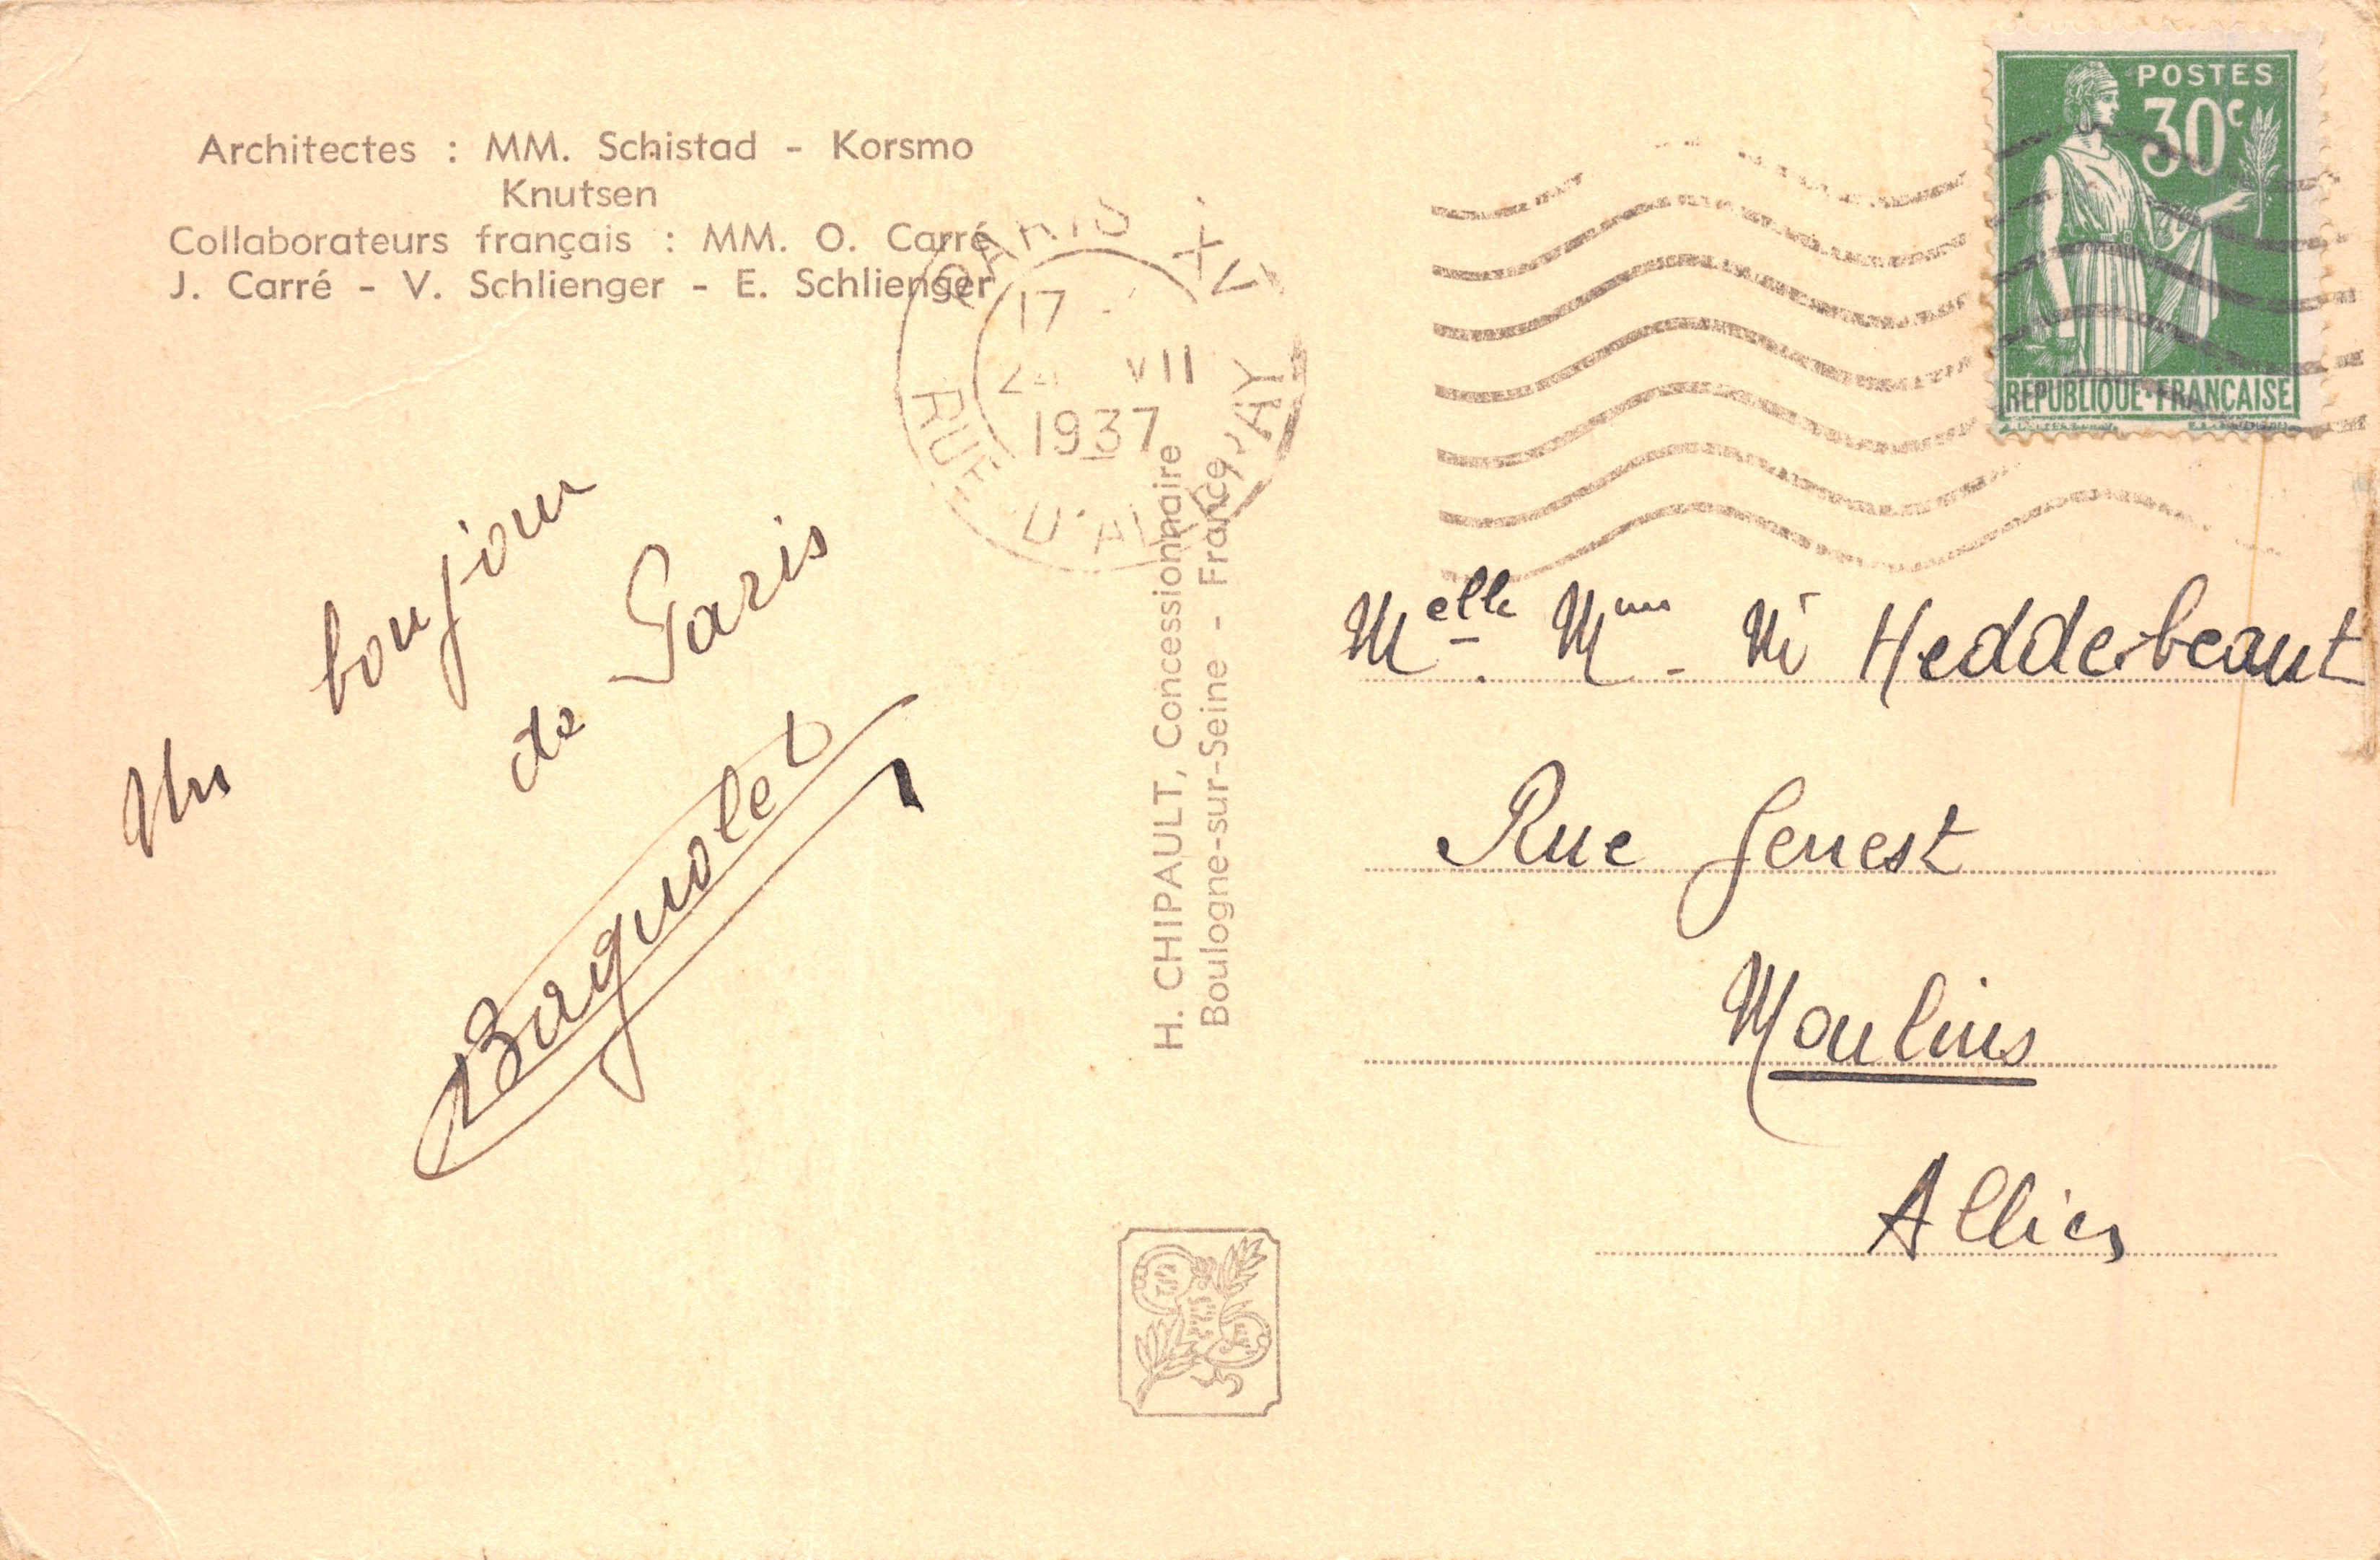 Architectes : MM. Schistad - Korsmo
Knutsen
Collaborateurs français : MM. O. Carré
J. Carré - V. Schlienger - E. Schlienger
POSTES
30c
RÉPUBLIQUE-FRANÇAISE
PARIS XV
17
24 VII
1937
RUE D'AL
H. CHIPAULT, Concessionnaire
Boulogne-sur-Seine - France
Un bonjour
de Paris
Bagnolet
Melle Mme Mr Heddebeaut
Rue Genest
Moulins
Allier